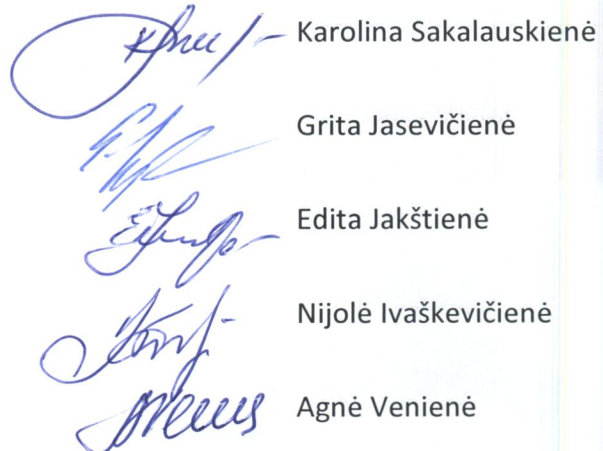 Karolina Sakalauskienė
Grita Jasevičienė
Edita Jakštienė
Nijolė Ivaškevičienė
Agnė Venienė